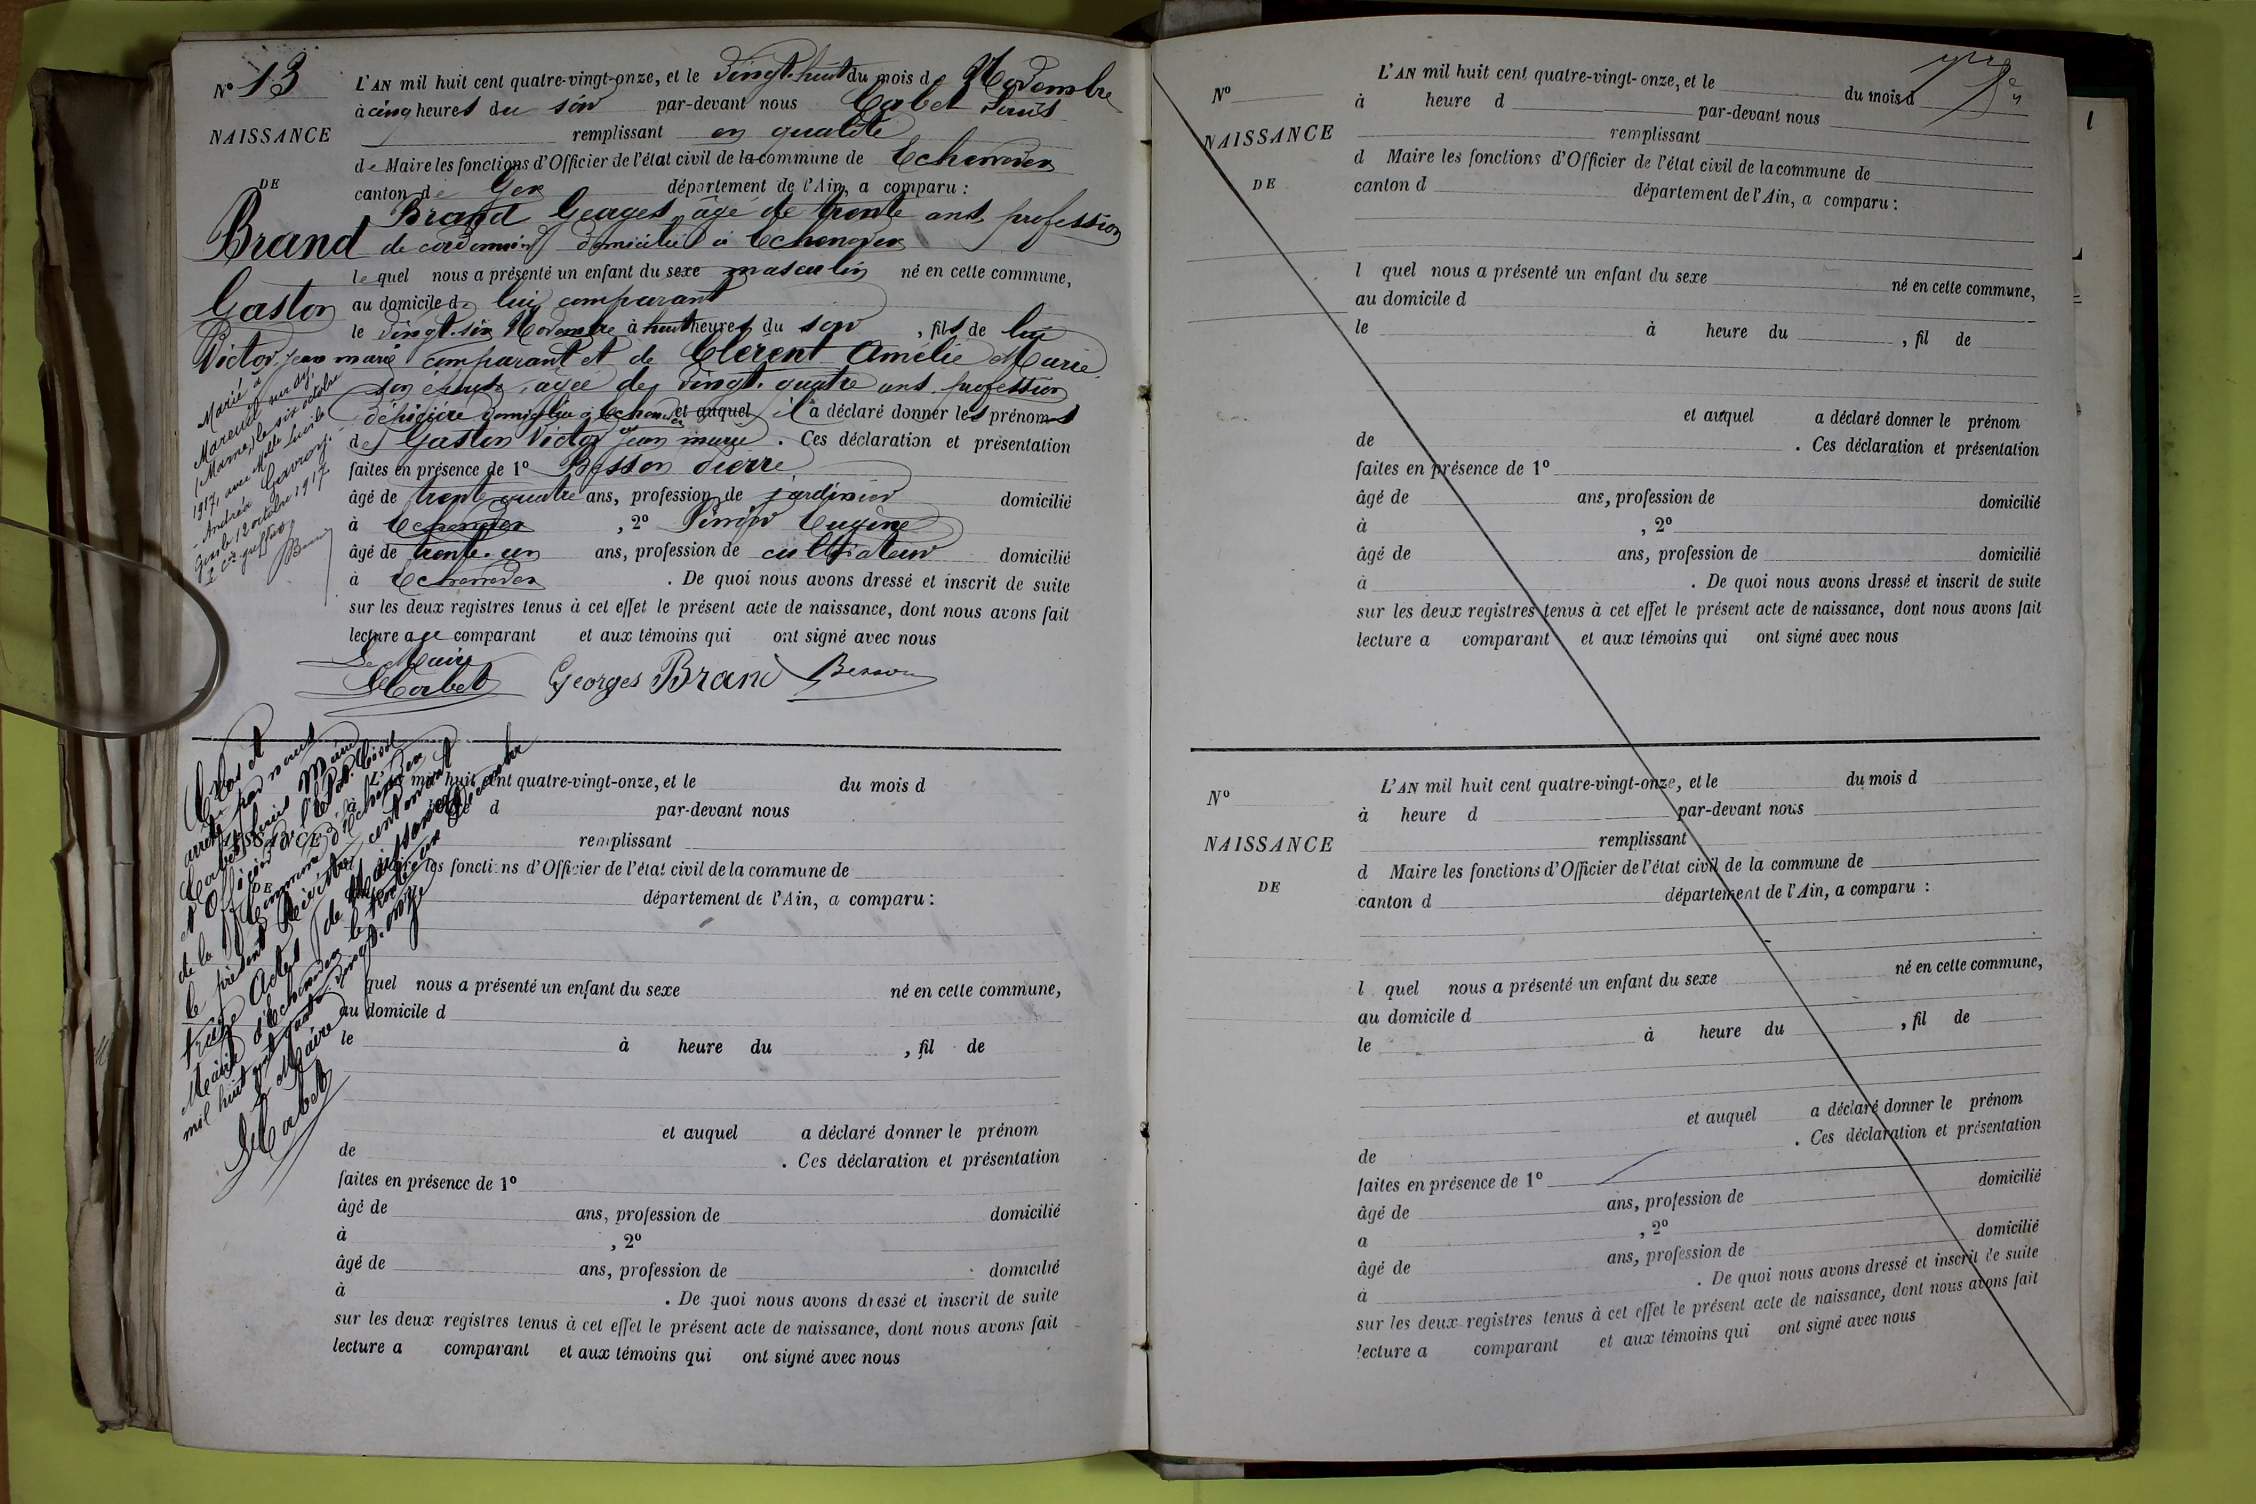 N° 13
NAISSANCE
DE
Brand
Gaston
Victor, Jean marie
L'AN mil huit cent quatre-vingt-onze, et le vingt-huit du mois de Novembre
à cinq heures du soir par-devant nous Cabet Louis
remplissant en qualité
de Maire les fonctions d'Officier de l'état civil de la commune de Echenevex
canton de Gex département de l'Ain, a comparu :
Brand Georges, âgé de trente ans, profession
de cordonnier domicilié à Echenevex
lequel nous a présenté un enfant du sexe masculin né en cette commune,
au domicile de lui comparant
le vingt-six Novembre à huit heures du soir, fils de lui
comparant et de Clerent Amélie Marie
son épouse, agée de vingt-quatre ans, profession
domiciliée à et auquel il a déclaré donner les prénoms
de Gaston Victor Jean marie. Ces déclaration et présentation
faites en présence de 1° Besson Pierre
âgé de trente quatre ans, profession de jardinier domicilié
à Echenevex, 2° Perrin Eugène
âgé de trente-un ans, profession de cultivateur domicilié
à Echenevex. De quoi nous avons dressé et inscrit de suite
sur les deux registres tenus à cet effet le présent acte de naissance, dont nous avons fait
lecture au comparant et aux témoins qui ont signé avec nous
Le Maire
Cabet Georges Brand Besson
Marié à
Mareuil sur Ay,
(Marne) le six octobre
1917, avec Melle Lucile
Andréa Gavroy.
Gex le 12 octobre 1917
Le greffier
Clos et
arrêté par nous
Cabet Louis Maire
et Officier de l'état Civil
de la Commune d'Echenevex
le présent Registre contenant
treize Actes de naissance
Mairie d'Echenevex le trente un Décembre
mil huit cent quatre-vingt-onze
Le Maire
Cabet
NAISSANCE
DE
L'AN mil huit cent quatre-vingt-onze, et le du mois d
d par-devant nous
remplissant
les fonctions d'Officier de l'état civil de la commune de
département de l'Ain, a comparu :
quel nous a présenté un enfant du sexe né en cette commune,
au domicile d
le à heure du , fil de
et auquel a déclaré donner le prénom
de . Ces déclaration et présentation
faites en présence de 1°
âgé de ans, profession de domicilié
à , 2°
âgé de ans, profession de domicilié
à . De quoi nous avons dressé et inscrit de suite
sur les deux registres tenus à cet effet le présent acte de naissance, dont nous avons fait
lecture a comparant et aux témoins qui ont signé avec nous
N°
NAISSANCE
DE
L'AN mil huit cent quatre-vingt-onze, et le du mois d
à heure d par-devant nous
remplissant
d Maire les fonctions d'Officier de l'état civil de la commune de
canton d département de l'Ain, a comparu :
l quel nous a présenté un enfant du sexe né en cette commune,
au domicile d
le à heure du , fil de
et auquel a déclaré donner le prénom
de . Ces déclaration et présentation
faites en présence de 1°
âgé de ans, profession de domicilié
à , 2°
âgé de ans, profession de domicilié
à . De quoi nous avons dressé et inscrit de suite
sur les deux registres tenus à cet effet le présent acte de naissance, dont nous avons fait
lecture a comparant et aux témoins qui ont signé avec nous
N°
NAISSANCE
DE
L'AN mil huit cent quatre-vingt-onze, et le du mois d
à heure d par-devant nous
remplissant
d Maire les fonctions d'Officier de l'état civil de la commune de
canton d département de l'Ain, a comparu :
l quel nous a présenté un enfant du sexe né en cette commune,
au domicile d
le à heure du , fil de
et auquel a déclaré donner le prénom
de . Ces déclaration et présentation
faites en présence de 1°
âgé de ans, profession de domicilié
a , 2°
âgé de ans, profession de domicilié
à . De quoi nous avons dressé et inscrit de suite
sur les deux registres tenus à cet effet le présent acte de naissance, dont nous avons fait
lecture a comparant et aux témoins qui ont signé avec nous